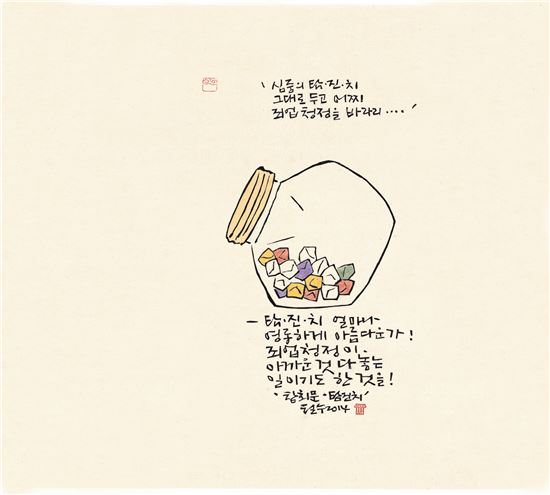 '심중의 탐·진·치
그대로 두고 어찌
죄업청정을 바라리····'
- 탐·진·치 얼마나
영롱하게 아름다운가!
죄업청정이.
아까운것 다 놓는
일이기도 한 것을!
'참회문·탐진치'
철수2014